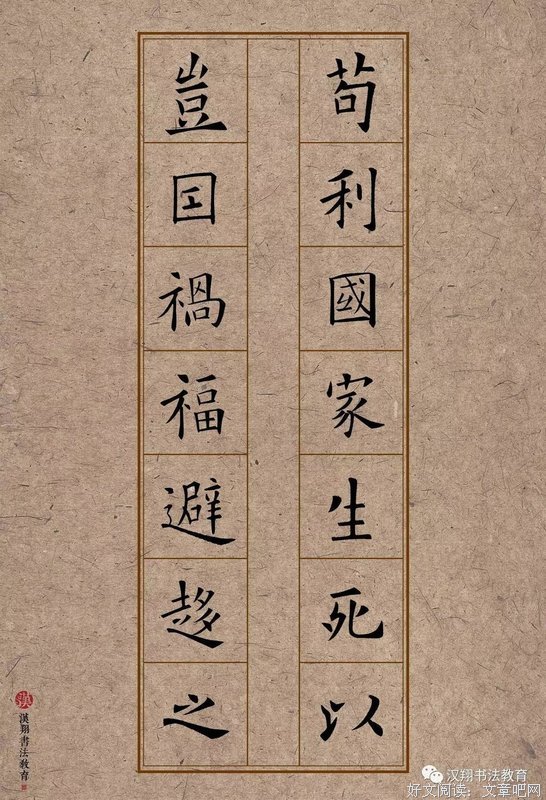 苟利國家生死以
豈囙禍福避趍之
漢
漢翔書法教育
汉翔书法教育
好文阅读：文章吧网